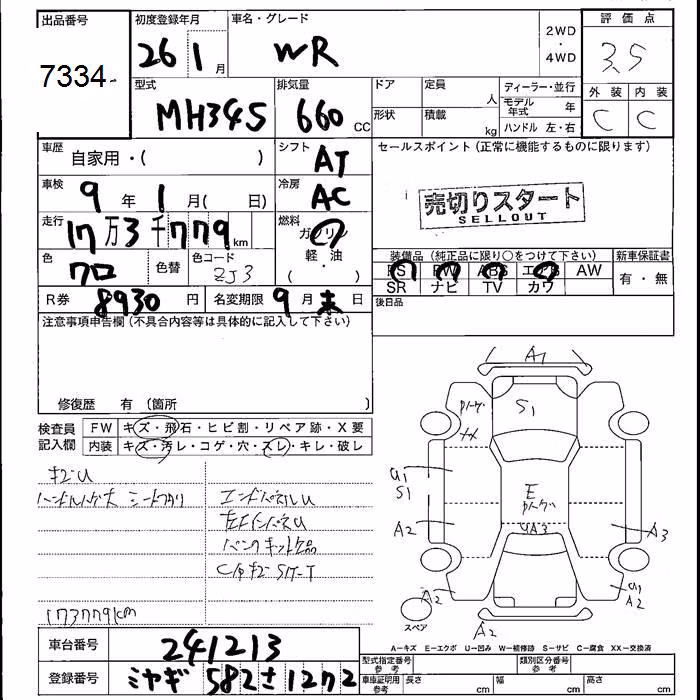 出品番号
7334
初度登録年月
26 1月
車名・グレード
WR
2WD
・
4WD
評価点
3.5
型式
MH34S
排気量
660 CC
ドア
形状
定員
人
積載
kg
ディーラー・並行
モデル年式 年
ハンドル 左・右
外装
C
内装
C
車歴
自家用・( )
シフト
AT
セールスポイント (正常に機能するものに限ります)
車検
9年 1月( 日)
冷房
AC
売切りスタート
SELLOUT
走行
17万3千779km
燃料
ガソリン
軽・油
( ・ )
色
クロ
色替
色コード
ZJ3
装備品 (純正品に限り○をつけて下さい)
PS PW ABS エアB AW
SR ナビ TV カワ
新車保証書
有・無
R券 8930円
名変期限 9月末日
後日品
注意事項申告欄 (不具合内容等は具体的に記入して下さい)
修復歴 有 〔箇所 〕
検査員
記入欄
FW キズ・飛石・ヒビ割・リペア跡・X要
内装 キズ・汚レ・コゲ・穴・スレ・キレ・破レ
キズU
エンドパネルU
173779km
A1
S1
U1
S1
E
UA3
A2
A3
A2
U1
A2
A2
スペア
A-キズ E-エクボ U-凹み W-補修跡 S-サビ C-腐食 XX-交換済
車台番号
241213
登録番号
ミヤギ 582 さ 1272
型式指定番号
参考
類別区分番号
参考
車庫証明用
参考
長さ cm
幅 cm
高さ cm